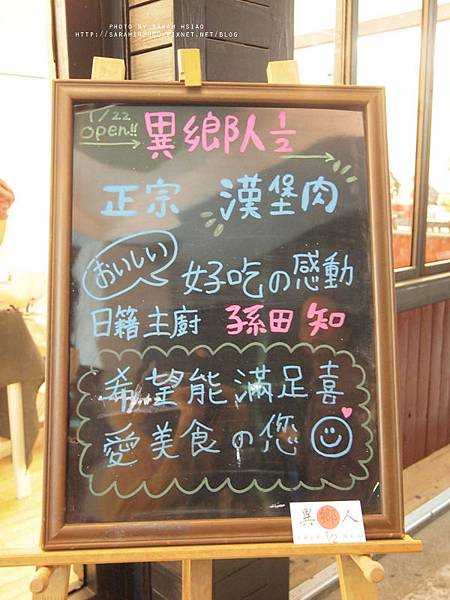 PHOTO BY SARAH HSIAO
1/22
open!!
異鄉人½
正宗 漢堡肉
おいしい
好吃の感動
日籍主廚 孫田 知
希望能滿足喜
愛美食の您
異鄉人
1/2